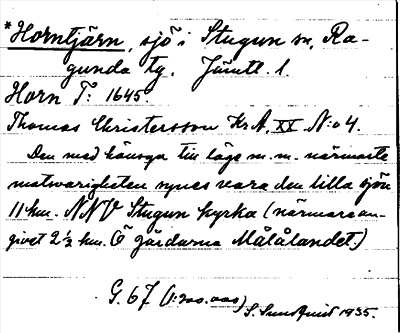 *Horntjärn, sjö i Stugun sn, Ra-
gunda tg. Jämtl. l.
Horn T: 1645.
Thomas Christersson Kr A, XX No 4.
Den med hänsyn till läge m. m. närmaste
motsvarigheten synes vara den lilla sjön
11 km. NNV Stugun kyrka (närmare an-
givet 2 ½ km. Ö gårdarna Målålandet.)
G. 67 (1:200.000) S. Sundquist 1935.